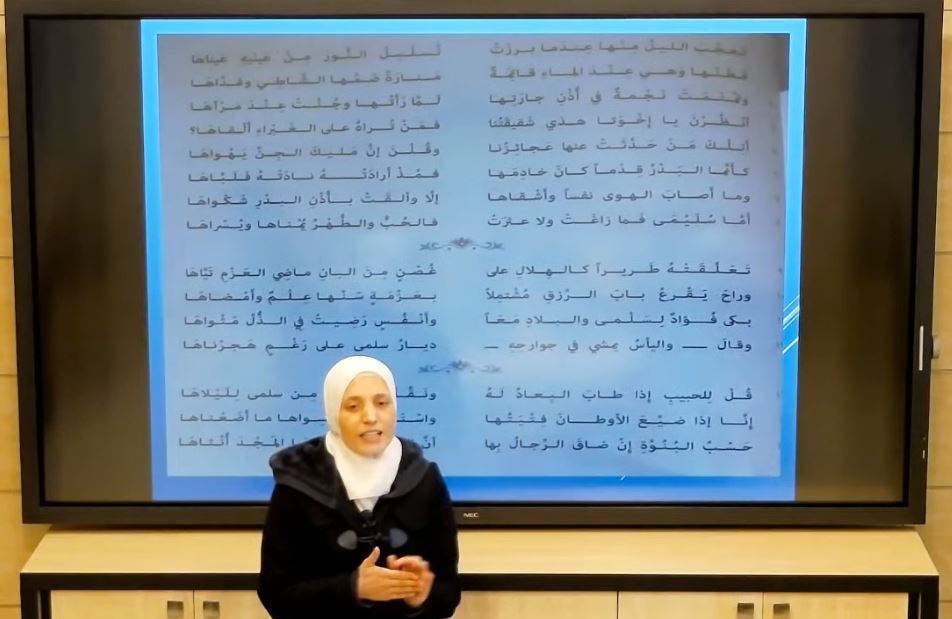 تعجّب الليل منها عندما برزتْ تُسلسل النّور مِنْ عينيه عيناها
فظنّها وهي عِنْدَ الماءِ قائمةٌ مَنارةً ضمّها الشّاطِي وفدّاها
وتمتمتْ نَجْمةٌ في أُذْنِ جارتِها لمّا رأتْها وجُنّتْ عِنْدَ مَرْآها
أُنظُرْنَ يا إخْوَتا هذي شقيقتُنا فمَنْ تُراهُ على الغَبْراءِ ألقاها؟
أتلكَ مَنْ حَدَّثَتْ عنها عَجائِزُنا وقُلْنَ إنّ مَليكَ الجِنّ يَهْواها
كأنّما البَدْرُ قِدْماً كانَ خادِمَها فمُذْ أرادَتْهُ نادَتْهُ فلبّاها
وما أصابَ الهوى نفساً وأشْقاها إلّا وألقَتْ بأُذْنِ البدْرِ شكْواها
أمّا سُلَيْمَى فما زاغَتْ ولا عثرَتْ فالحُبُّ والطُّهْرُ يُمْناها ويُسْراها
تَعَلَّقَتْهُ طَريراً كالهِلالِ على غُصْنٍ مِنَ البانِ ماضِي العَزْمِ تيّاها
وراحَ يَقْرعُ بابَ الرِّزقِ مُشْتمِلاً بعَزْمةٍ سَنّها عِلْمٌ وأمْضاها
بكى فُؤادٌ لِسَلْمى والبلادِ مَعاً وأنْفُسٍ رَضِيَتْ في الذُّلِّ مَثْواها
وقالَ — واليأسُ يمْشي في جوارحِهِ — ديارُ سلمى على رَغْمٍ هَجرْناها
قُلْ لِلحبيبِ إذا طابَ البعادُ لَهُ مِن سلمى لِلَيْلاها
إنّا إذا ضَيَّعَ الأوطانَ فِتْيَتُها بسِواها ما أضَعْناها
حَسْبُ البُنُوَّةِ إنْ ضاقَ الرِّجالُ بِها المَجْدَ
NEC